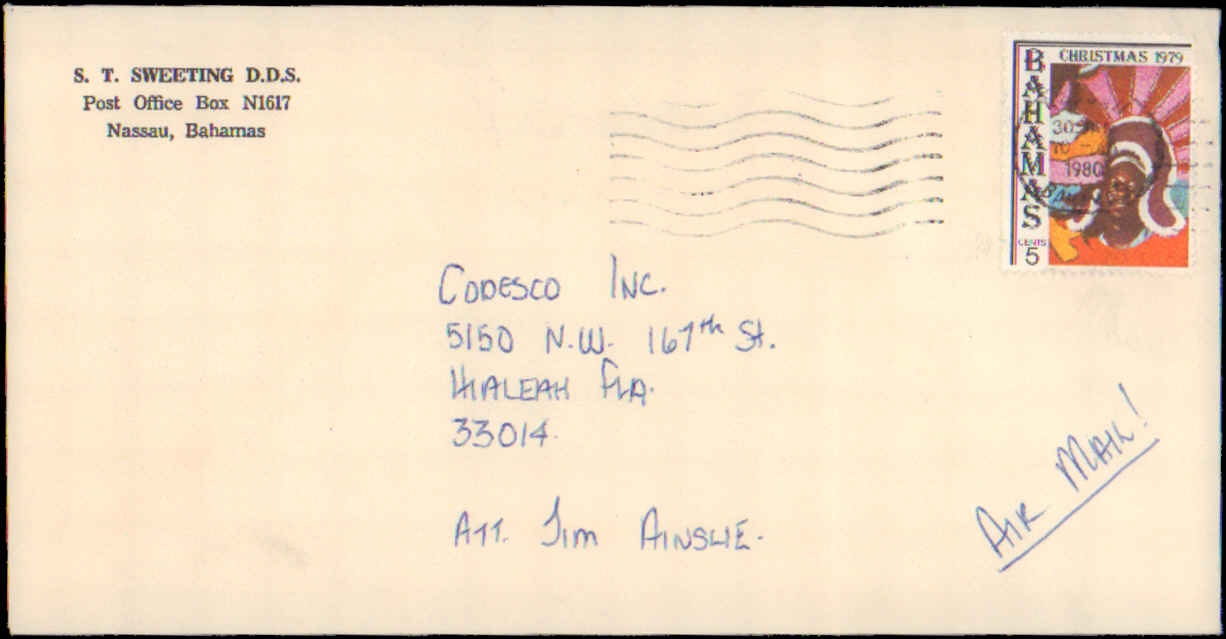 S. T. SWEETING D.D.S.
Post Office Box N1617
Nassau, Bahamas
BAHAMAS
CHRISTMAS 1979
CENTS
5
30
10
1980
CODESCO INC.
5150 N.W. 167th St.
HIALEAH FLA.
33014.
ATT. JIM AINSLIE.
AIR MAIL!